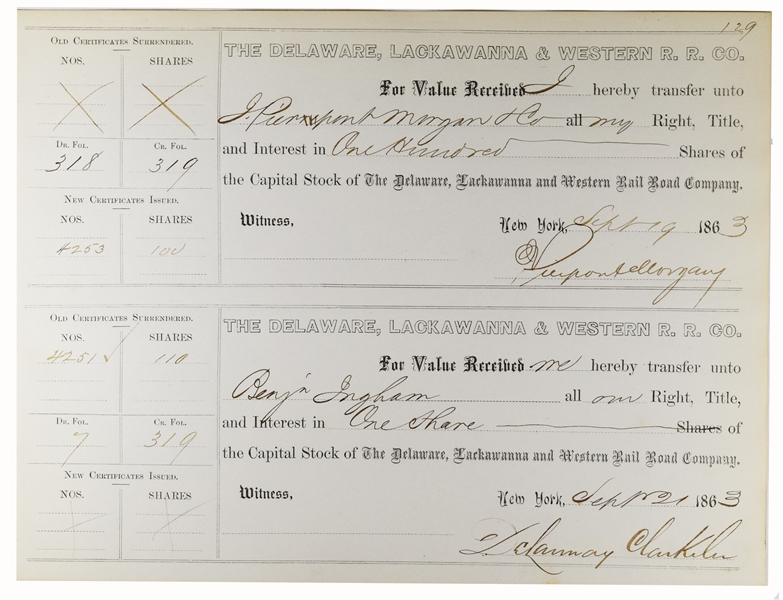 129
OLD CERTIFICATES SURRENDERED.
NOS. SHARES
DR. FOL. CR. FOL.
318 319
NEW CERTIFICATES ISSUED.
NOS. SHARES
4253 100
THE DELAWARE, LACKAWANNA & WESTERN R. R. CO.
For Value Received I hereby transfer unto
J. Pierpont Morgan & Co all my Right, Title,
and Interest in One Hundred Shares of
the Capital Stock of The Delaware, Lackawanna and Western Rail Road Company.
Witness, New York, Sept 19 1863
J Pierpont Morgan
OLD CERTIFICATES SURRENDERED.
NOS. SHARES
4251 110
DR. FOL. CR. FOL.
7 319
NEW CERTIFICATES ISSUED.
NOS. SHARES
THE DELAWARE, LACKAWANNA & WESTERN R. R. CO.
For Value Received we hereby transfer unto
Benjn Ingham all our Right, Title,
and Interest in One Share Shares of
the Capital Stock of The Delaware, Lackawanna and Western Rail Road Company.
Witness, New York, Sept 21 1863